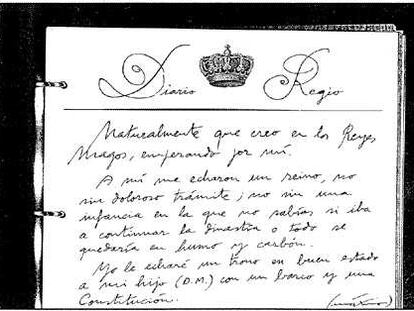 Diario Regio
Naturalmente que creo en los Reyes
Magos, empezando por mí.
A mí me echaron un reino, no
sin doloroso trámite; no sin una
infancia en la que no sabías si iba
a continuar la dinastía o todo se
quedaría en humo y carbón.
Yo le echaré un trono en buen estado
a mi hijo (D.M.) con un barco y una
Constitución.